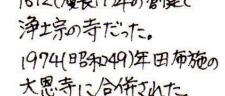 1612(慶長17)年の創建で
浄土宗の寺だった。
1974(昭和49)年田布施の
大恩寺に合併された